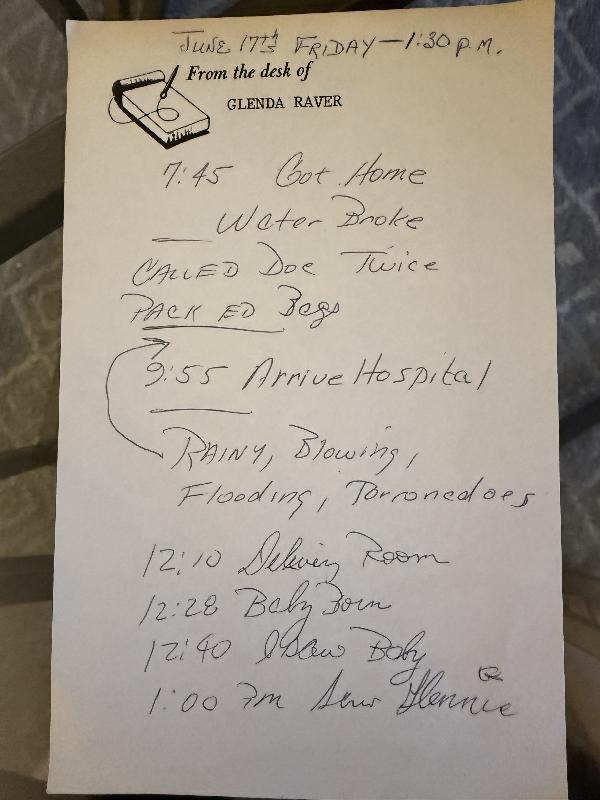 JUNE 17th FRIDAY — 1:30 P.M.
From the desk of
GLENDA RAVER
7:45 Got Home
Water Broke
CALLED Doc Twice
PACKED Bags
9:55 Arrive Hospital
RAINY, Blowing,
Flooding, Torronedoes
12:10 Delivery Room
12:28 Baby Born
12:40 I Saw Baby
1:00 Saw Glennie